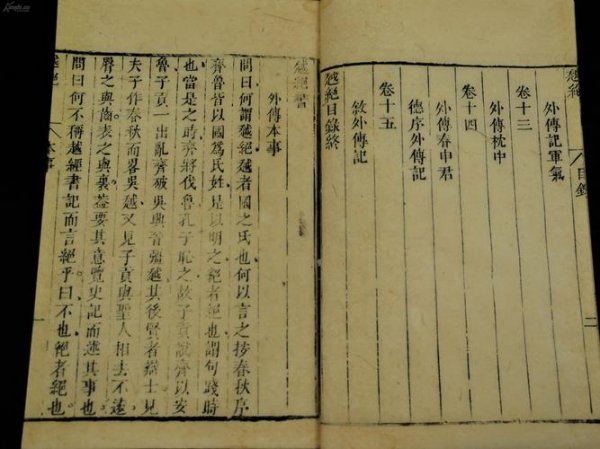 越絕
目錄
二
外傳記軍氣
卷十三
外傳枕中
卷十四
外傳春申君
德序外傳記
卷十五
敘外傳記
越絕目錄終
越絕書
外傳本事
問曰何謂越絕越者國之氏也何以言之按春秋序
齊魯皆以國為氏姓是以明之絕者絕也謂句踐時
也當是之時齊將伐魯孔子恥之故子貢說齊以安
魯子貢一出亂齊破吳興晉彊越其後賢者辯士見
夫子作春秋而畧吳越又見子貢與聖人相去不遠
脣之與齒表之與裏葢要其意覽史記而述其事也
問曰何不稱越經書記而言絕乎曰不也絕者絕也
越絕
本事
一